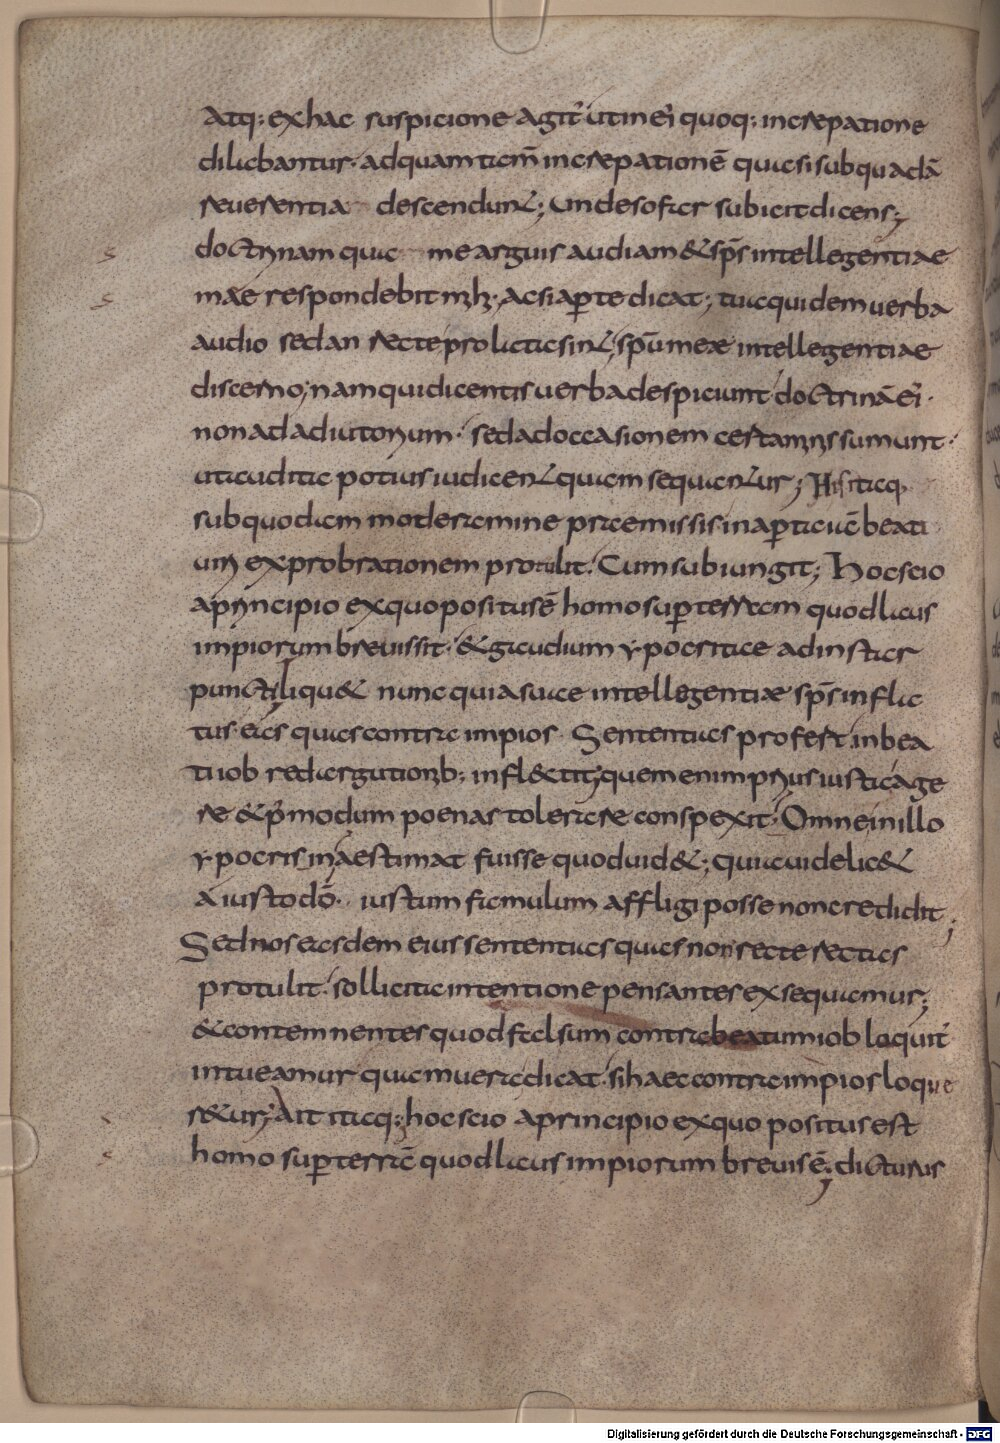 atq; ex hac suspicione agit᷑ ut in ei᷑ quoq; increpatione
dilabantur· ad quam tam̄ increpationē quasi sub quadā
reuerentia descendunt; Unde sofar subicit dicens;
doctrinam qua me arguis audiam & sp̄s intellegentiae
mae respondebit mihi· ac si aꝑte dicat; tua quidem uerba
audio sed an recte prolata sint, sp̄u meae intellegentiae
discerno; nam qui dicentis uerba despiciunt doctrinā ei᷑·
non ad adiutorium· sed ad occasionem certaminis sumunt·
ut audita potius iudicent quam sequantur; His itaq,
sub quodam moderamine praemissis in aꝑta uē beati
uiri exprobrationem protulit· Cum subiungit; Hoc scio
a principio ex quo positus ē homo suꝑ terram quod laus
impiorum breuis sit· & gaudium ypocritae ad instar
puncti; liqu& nunc quia suae intellegentiae sp̄s infla
tus· eas quas contra impios Sententias profert in bea
ti iob redargutionib; infl&tit; quem enim prius iusta age
re & p̄ modum poenas tolerare conspexit· Omne in illo
ypocrisin aestimat fuisse quod uid&; quia uidelic&
a iusto dō· iustum famulum affligi posse non credidit;
Sed nos easdem eius sententias quas non recte rectas
protulit· sollicita intentione pensantes exsequamur;
& contemnentes quod falsum contra beatum iob loquit᷑
intueamur quam uera dicat· si haec contra impios loque
r&ur; Ait itaq; hoc scio a principio ex quo positus est
homo suꝑ terrā quod laus impiorum breuis ē; dicturus
Digitalisierung gefördert durch die Deutsche Forschungsgemeinschaft - DFG